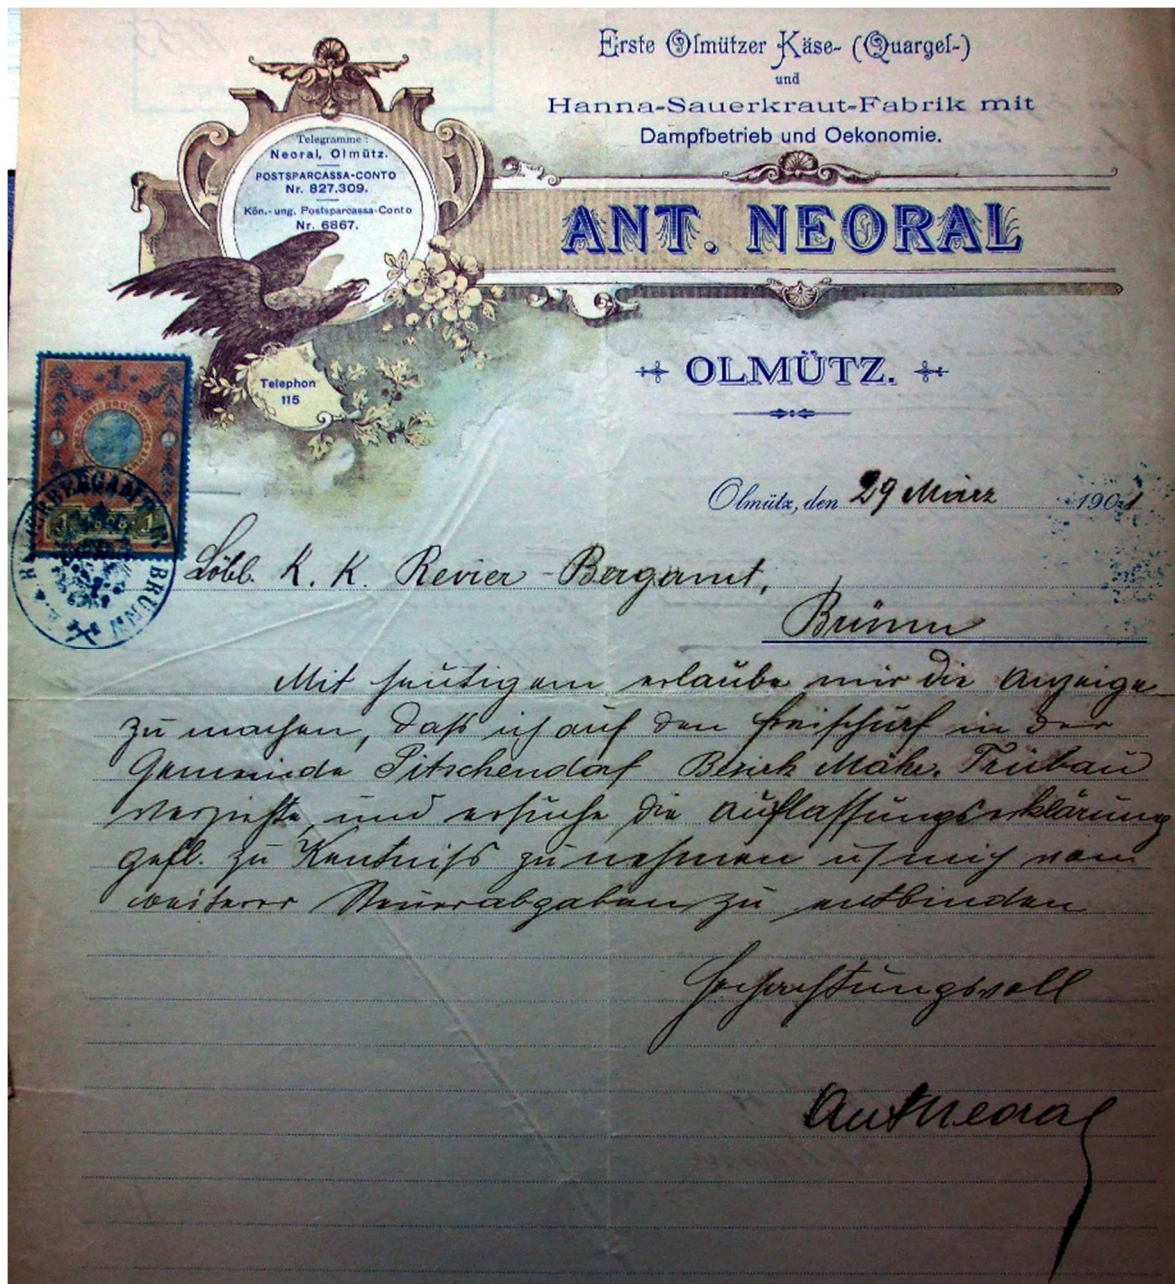 Erste Olmützer Käse- (Quargel-)
und
Hanna-Sauerkraut-Fabrik mit
Dampfbetrieb und Oekonomie.
Telegramme:
Neoral, Olmütz.
POSTSPARCASSA-CONTO
Nr. 827.309.
Kön.-ung. Postsparcassa-Conto
Nr. 6867.
ANT. NEORAL
OLMÜTZ.
Telephon
115
1
1 1898 1
BRÜNN
Olmütz, den 29 März 1901
Löbl. K. K. Revier-Bergamt,
Brünn
Mit heutigem erlaube mir die Anzeige
zu machen, daß ich auf den Freischurf in der
Gemeinde Pitschendorf Bezirk Mähr. Trübau
verzichte, und ersuche die Auflassungserklärung
gefl. zu Kentniss zu nehmen u mich von
weiterer Steuerabgaben zu entbinden
Hochachtungsvoll
Ant Neoral